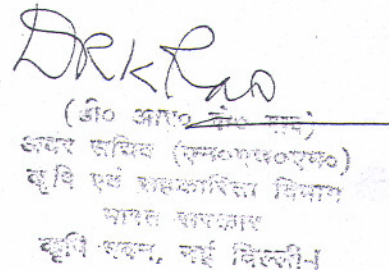 DRKRao
(डी० आर० के० राव)
अवर सचिव (एन०एच०एम०)
कृषि एवं सहकारिता विभाग
भारत सरकार
कृषि भवन, नई दिल्ली-1